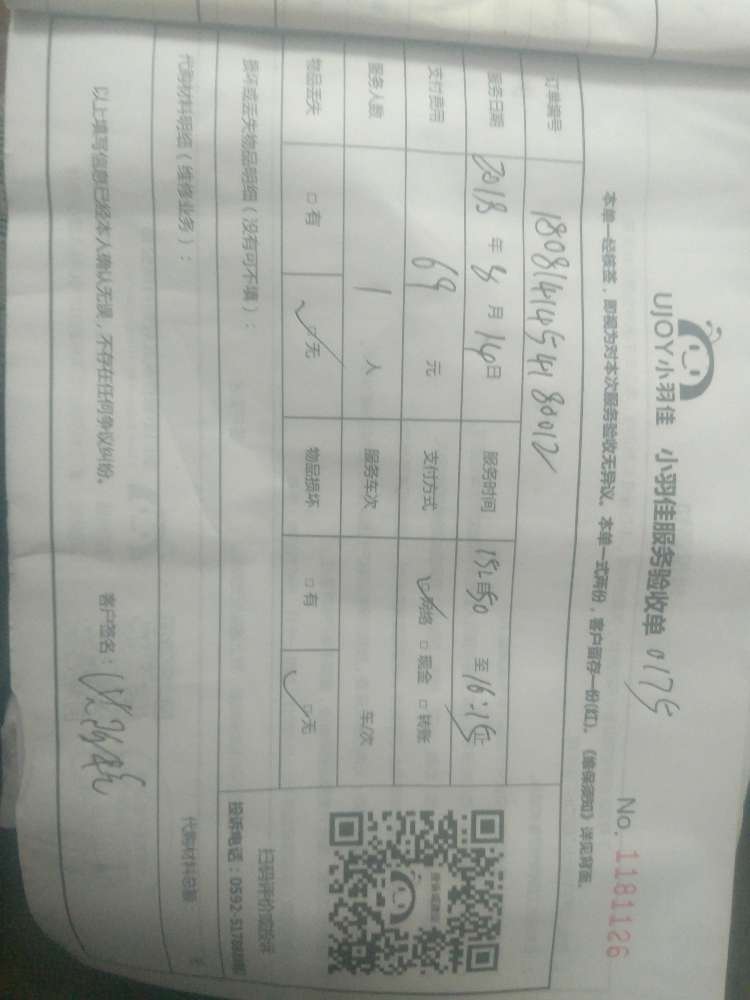 UJOY小羽佳 小羽佳服务验收单 0175
No. 1181126
本单一经核签，即视为对本次服务验收无异议。本单一式两份，客户留存一份(红)。《维保须知》详见背面。
订单编号
服务日期 2018 年 8 月 14 日 服务时间 至 16:15 止
支付费用 69 元 支付方式 ☑ 网络 □ 现金 □ 转账
服务人数 1 人 服务车次 车/次
物品丢失 □ 有 ☑ 无 物品损坏 □ 有 ☑ 无
损坏或丢失物品明细（没有可不填）：
扫码评价或投诉
投诉电话：
代购材料明细（维修业务）： 代购材料总额 元
以上填写信息已经本人确认无误，不存在任何争议纠纷。 客户签名：